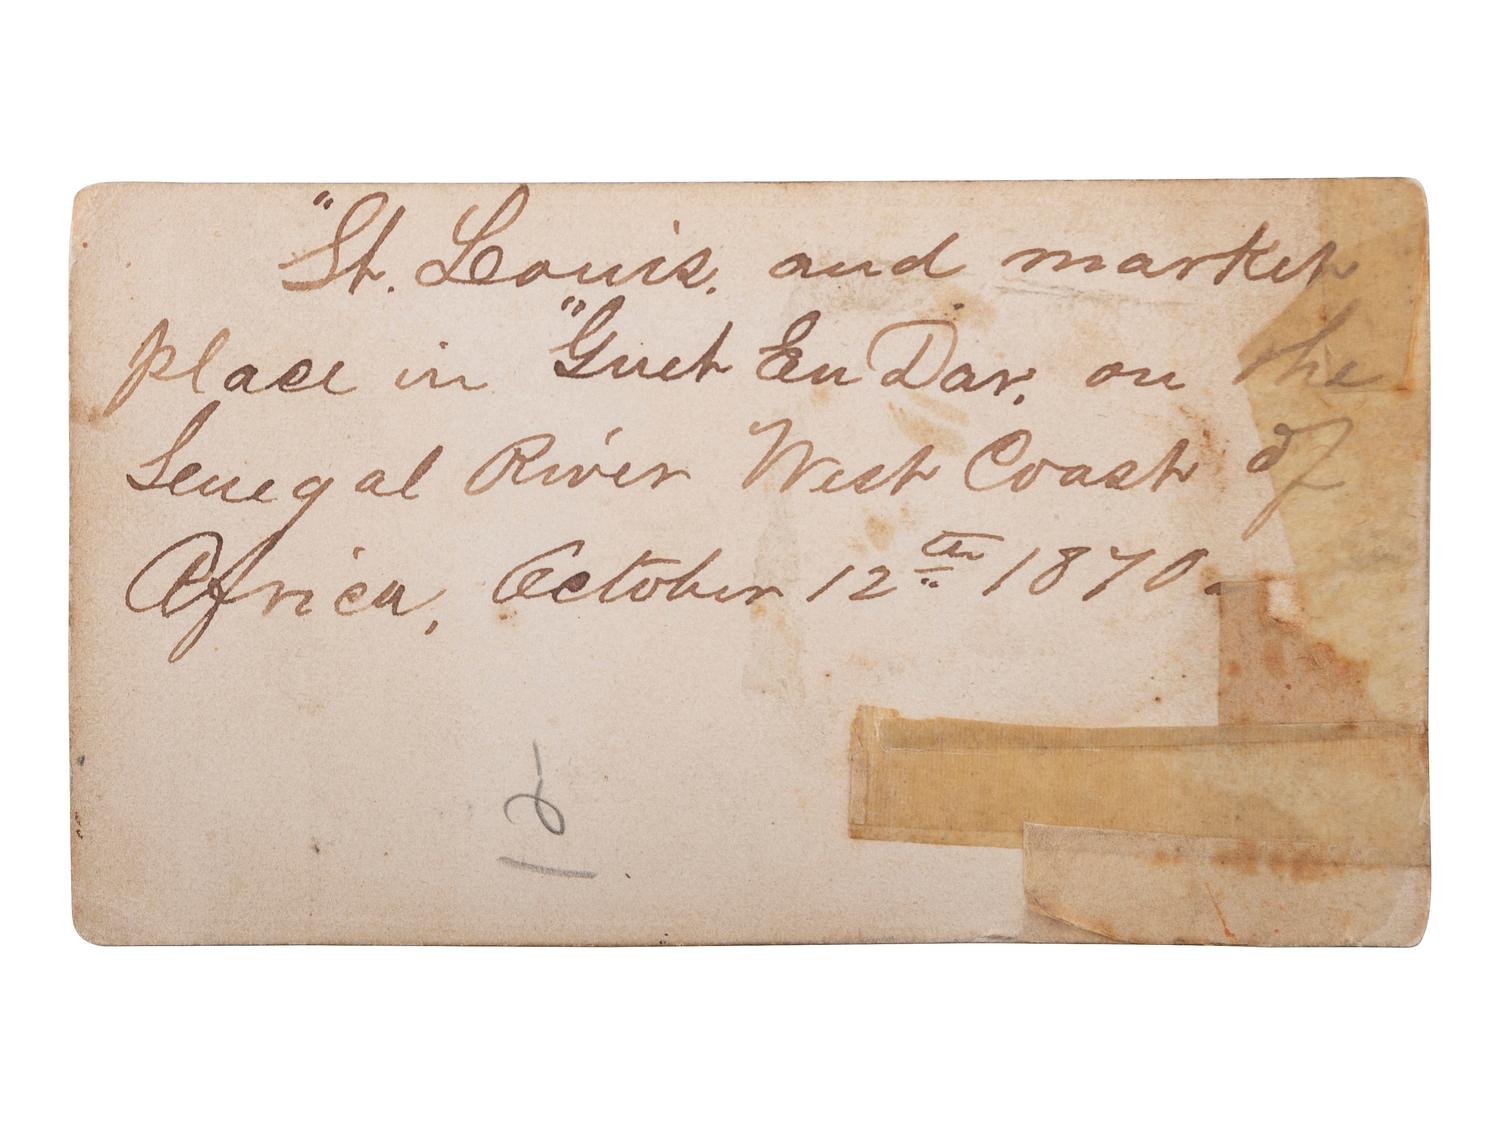 "St. Louis. and market
place in "Guet En Dar, on the
Senegal River West Coast of
Africa, October 12th 1870.